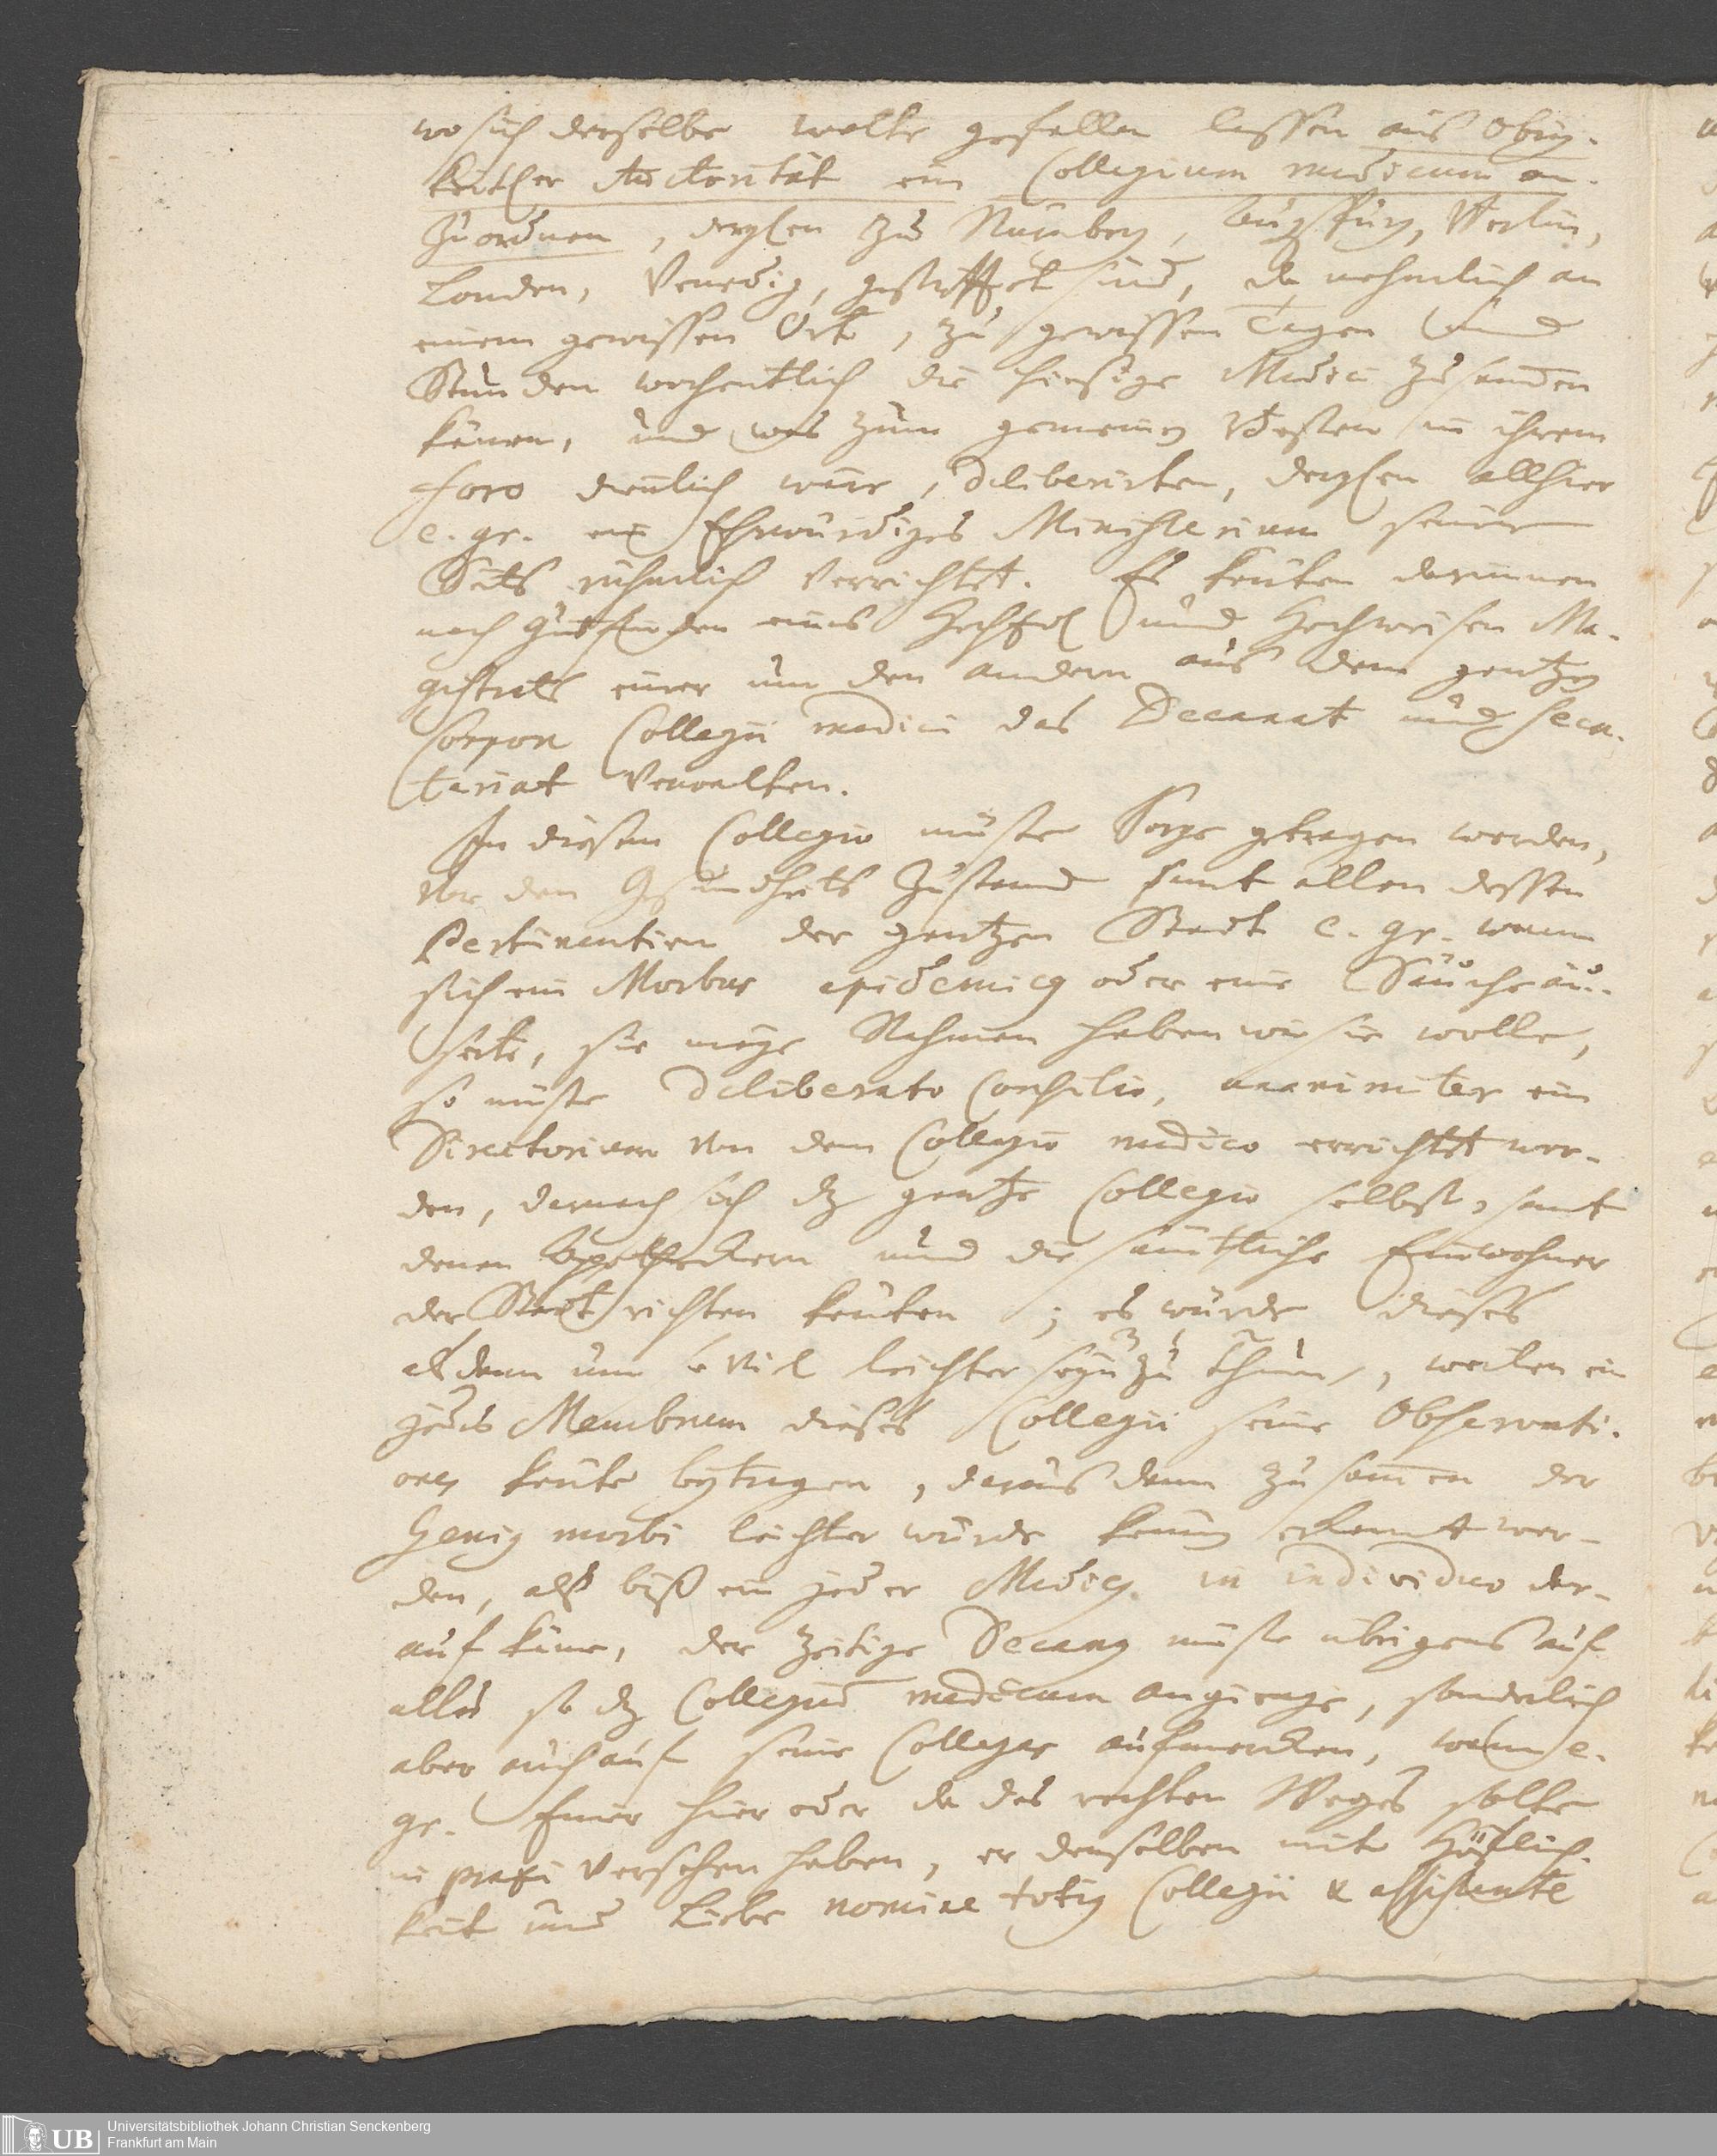 wo sich derselbe wolte gefallen lassen aus Obrig-
keitlicher Auctorität ein Collegium medicum an-
zuordnen, dergleichen zu Nürnberg, Augspurg, Berlin,
Londen, Venedig, gestifftet sind, da nehmlich an
einem gewissen Ort, zu gewissen Tagen und
Stunden wochentlich die hiesige Medici zusammen
kämen, und was zum gemeinen Besten in ihrem
foro dienlich wäre, deliberirten, dergleichen allhier
e. gr. ein Ehrwürdiges Ministerium seiner
Seits rühmlich verrichtet. Es könten darinnen
nach Gutfinden eines Hochedl und Hochweisen Ma-
gistrats einer um den andern aus dem gantzen
corpore Collegii medici das Decanat und Secre-
tariat verwalten.
In diesem Collegio müste Sorge getragen werden,
vor den Gesundheits Zustand samt allen dessen
Pertinentien der gantzen Stadt e. gr. wann
sich ein Morbus epidemicus oder eine Säuche äu-
serte, sie möge Nahmen haben wie sie wolle,
so müste deliberato Consilio, unanimiter ein
Directorium von dem Collegio medico errichtet wer-
den, darnach sich dz gantze Collegio selbst, samt
denen Appotheckern und die sämtliche Einwohner
der Stadt richten könten; es würde dieses
alsdann um so viel leichter seyn zu thun, weilen ein
jedes Membrum dieses Collegii seine Observati-
ones könte beytragen, daraus dann zusammen der
Genius morbi leichter würde können erkannt wer-
den, alß biß ein jeder Medicus in individuo dar-
auf käme, der zeitige Decanus müste übrigens auf
alles so dz Collegium medicum angienge, sonderlich
aber auch auf seine Collegas aufmercken, wann e.
gr. Einer hier oder da des rechten Weges solte
in praxi verfehlen haben, er denselben mit Höflich-
keit und Liebe nomine totius Collegii & assistente
Universitätsbibliothek Johann Christian Senckenberg
Frankfurt am Main
UB